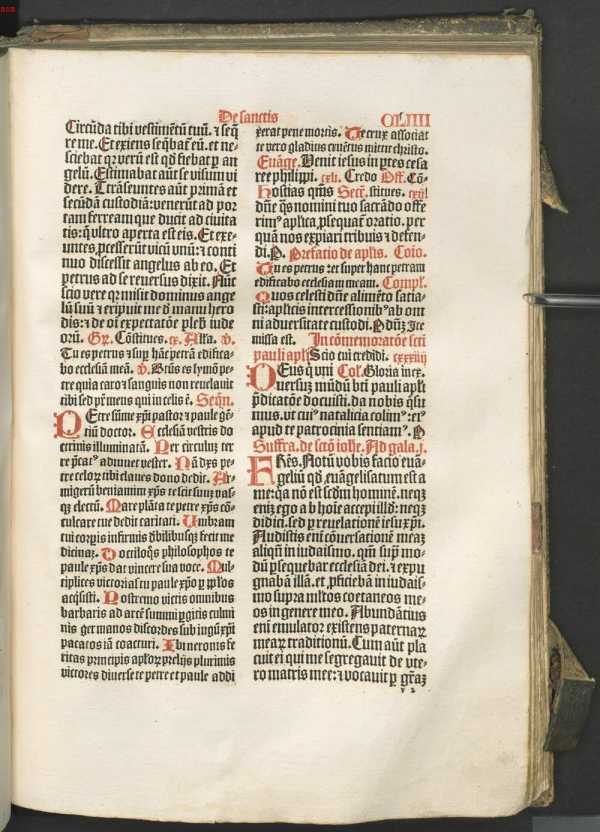 De sanctis CLIIII
Circūda tibi vestimētū tuū. ⁊ seq̄
re me. Et exiens seq̄bat̉ eū. et ne-
sciebat qꝛ verū est qd̄ fiebat ꝑ an
gelū. Estimabat aūt se visum vi
dere. Trāseuntes aūt primā et
secūdā custodiā: venerūt ad por
tam ferream que ducit ad ciuita
tis: q̄ vltro aperta est eis. Et exe-
untes ꝓcesserūt vicū vnū: ⁊ conti
nuo discessit angelus ab eo. Et
petrus ad se reuersus dixit. Nūc
scio vere qꝛ misit dominus ange
lū suū ⁊ eripuit me d̄ manu hero
dis: ⁊ de oī expectatōe pleb̄ iude
orū. Gꝛ. Cōstitues. cx. Alla. v̄.
Tu es petrus ⁊ suꝑ hāc petrā edifica-
bo ecclesiā meā. v̄. Btūs es symō pe-
tre quia caro ⁊ sanguis non reuelauit
tibi sed pr̄ meus qui in celis ē. Seqn̄.
PEtre sūme xp̄i pastor ⁊ paule gē-
tiū doctor. Ecclesiam vestris do
ctrinis illuminatā. Per circulū ter
re p̄cat̉ adiuuet vester. Nā dn̄s pe-
tre celoꝝ tibi claues dono dedit. Ar-
migerū beniamin xp̄s te scit suū vas-
qꝫ electū. Mare plāta te petre xp̄s cō-
culcare tue dedit caritati. Umbram
tui corpis infirmis d̄bilibusqꝫ fecit me
dicinaꝫ. Dociloq̄s philosophos te
paule xp̄s dat vincere sua voce. Mul-
tiplices victorias tu paule xp̄o ꝑ pp̄los
acq̄sisti. Postremo victis omnibus
barbaris ad arcē summi ꝑgitis culmi
nis germanos discordes sub iugū xp̄i
pacatos iā coacturi. Ibi neronis fe
ritas principis apl'oꝝ prelijs plurimis
victores diuerse te petre et paule addi
xerat pene mortis. Te crux associat
te vero gladius cruētus mittit christo.
Euāge. Venit iesus in ꝑtes cesa
ree philippi. cxli. Credo Off. Cō-
Hostias qm̄s Secr̄. stitues. cxij
dn̄e q̄s nomini tuo sacrādo offe
rim̉ aplica ꝓsequat̉ oratio. per
quā nos expiari tribuis ⁊ defen-
di. P. Prefatio de aplis. Coīo.
Tu es petrus: et super hanc petram
edificabo ecclesiam meam. Compl.
Quos celesti dn̄e alimēto satia-
sti: aplicis intercessionib̉ ab om
ni aduersitate custodi. P dn̄ꝫ Ite
missa est. In cōmemoratōe scti
pauli apli Scio cui credidi. cxxxiij
DEus q̄ vni Col. Gloria in ex.
uersuꝫ mūdū bti pauli apl'i
p̄dicatōe docuisti. da nobis q̄su
mus. vt cuỉ natalicia colim̉: eỉ
apud te patrocinia sentiam̉. P
Suffra. de scto iohe. Ad gala. j.
FRēs. Notū vobis facio euā-
geliū qd̄ euāgelisatum est a
me: qꝛ nō est scdm hominē. neqꝫ
enī ego a b hoīe accepi illd̄: neqꝫ
didici. sed ꝑ reuelationē iesu xp̄i.
Audistis enī cōuersationē meaꝫ
aliqn̄ in iudaismo. qm̄ supͣ mo-
dū ꝑsequebar ecclesiā dei. ⁊ expu
gnabā illā. et ꝓficiebā in iudais-
mo supra ml̄tos coetaneos me-
os in genere meo. Abundātius
enī emulator existens paternaꝝ
meaꝝ traditionū. Cum aūt pla
cuit ei qui me segregauit de vte-
ro matris mee: ⁊ vocauit ꝑ gr̄aꝫ
v 2